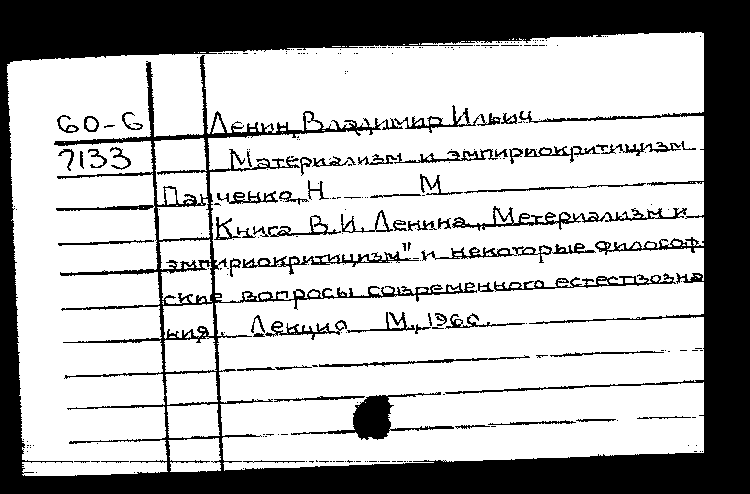 60-6 Ленин, Владимир Ильич
7133 Материализм и эмпириокритицизм
Панченко, Н М
Книга В.И. Ленина „Метериализм и
эмпириокритицизм" и некоторые философ-
ские вопросы современного естествозна
ния. Лекция М., 1960.